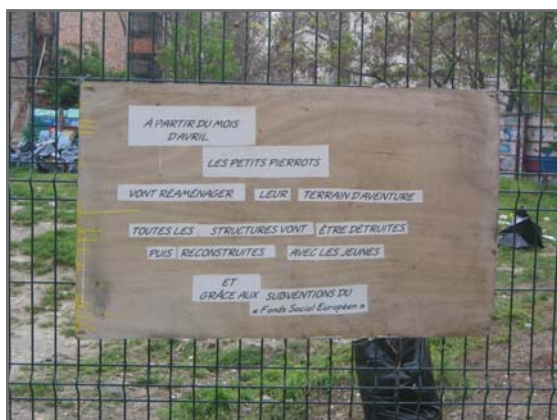 À PARTIR DU MOIS
D'AVRIL
LES PETITS PIERROTS
VONT RÉAMÉNAGER LEUR TERRAIN D'AVENTURE
TOUTES LES STRUCTURES VONT ÊTRE DÉTRUITES
PUIS RECONSTRUITES AVEC LES JEUNES
ET
GRÂCE AUX SUBVENTIONS DU
« Fonds Social Européen »